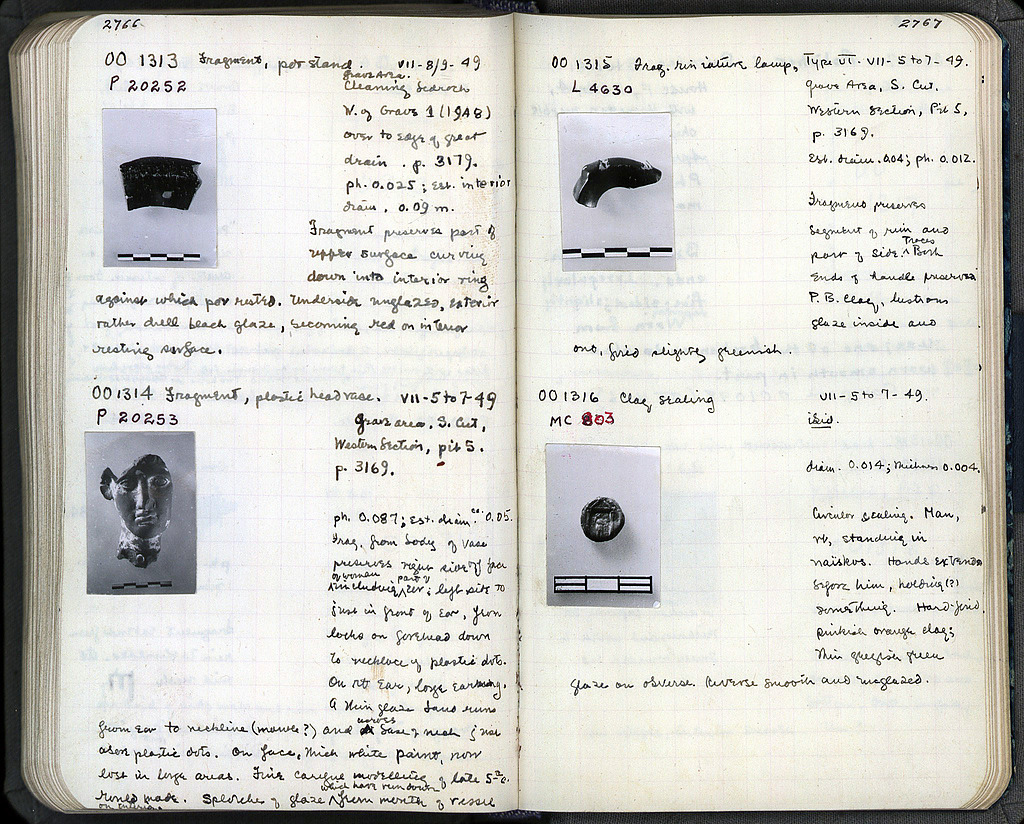 2766
OO 1313 Fragment, pot stand. VII-8/9-49
P 20252
Grave Area.
Cleaning bedrock
W. of Grave 1 (1948)
over to edge of great
drain. p. 3179.
ph. 0.025; Est. interior
diam. 0.09 m.
Fragment preserves part of
upper surface curving
down into interior ring
against which pot rested. Underside unglazed, exterior
rather dull black glaze, becoming red on interior
resting surface.
OO 1314 Fragment, plastic head vase. VII-5 to 7-49
P 20253
Grave area, S. Cut,
Western Section, pit 5.
p. 3169.
ph. 0.087; Est. diam. ca. 0.05.
Frag. from body of vase
preserves right side of face
of woman including part of ear; left side to
just in front of ear, from
locks on forehead down
to necklace of plastic dots.
On rt. ear, large earring.
A thin glaze band runs
from ear to neckline (mantle?) and across base of neck just
above plastic dots. On face, thick white paint, now
lost in large areas. Fine careful modelling of late 5th c.
Mould made. Splotches of glaze which have run down from mouth of vessel
on interior.
2767
OO 1315 Frag. miniature lamp, Type VI. VII-5 to 7-49.
L 4630
Grave Area, S. Cut.
Western Section, Pit 5,
p. 3169.
Est. diam. .04; ph. 0.012.
Fragment preserves
segment of rim and
part of side. Traces Both
ends of handle preserved
P.B. clay, lustrous
glaze inside and
out, fired slightly greenish.
OO 1316 Clay sealing VII-5 to 7-49.
MC 803
ibid.
diam. 0.014; thickness 0.004.
Circular sealing. Man,
rt, standing in
naiskos. Hands extended
before him, holding(?)
something. Hard-fired,
pinkish orange clay;
thin greyish green
glaze on obverse. Reverse smooth and unglazed.